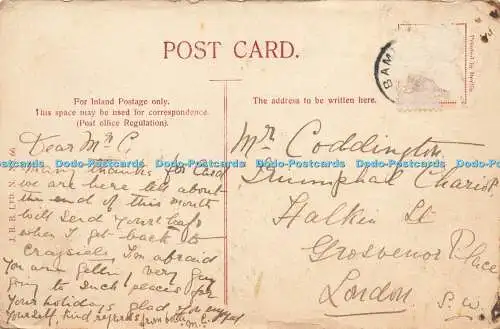 POST CARD.
For Inland Postage only.
This space may be used for correspondence.
(Post office Regulation).
The address to be written here.
Printed in Berlin.
BAM
J. B. B. Ltd. N. 66
Dear Mr C.
Many thanks for Card
we are here till about
the end of this month
will send yours
when I get back to
I'm afraid
You are getting very gay
going to such places for
Your holidays glad you enjoyed
Yourself, kind regards from both
Mr Coddington
Triumphal Chariot
Halkin St
Grosvenor Place
London
S.W.
Dodo-Postcards Dodo-Postcards Dodo-Postcards Dodo-Postcards Dodo-Postcards